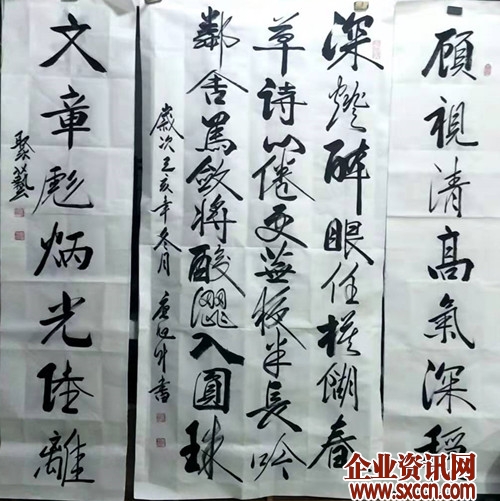 顾視清高氣深穩
深燈醉眼任模餬春
草詩心倦更蕪半長吟
鄰舍篤斂將酸澀入圓珠
歲次己亥年冬月 書
文章彪炳光陸離
聚藝
企业资讯网
www.sxccn.com